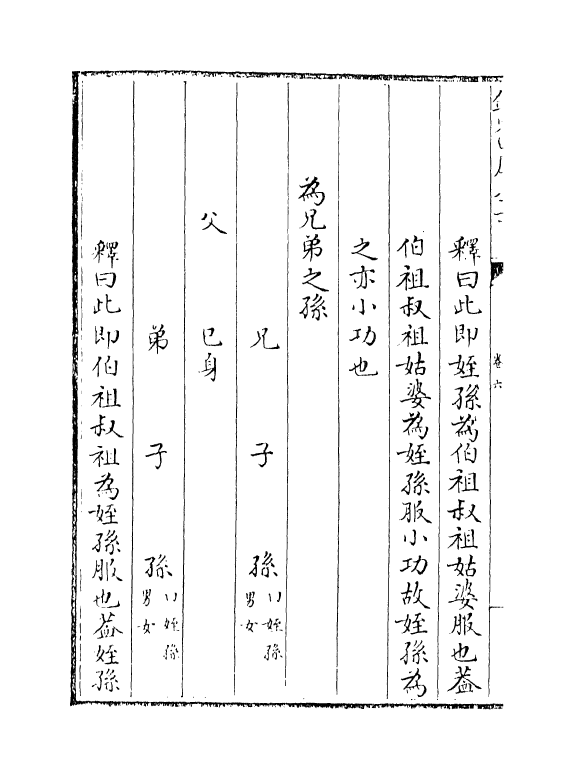 卷六
釋曰此即姪孫為伯祖叔祖姑婆服也葢
伯祖叔祖姑婆為姪孫服小功故姪孫為
之亦小功也
為兄弟之孫
兄 子 孫 姪孫男女
父 巳身
弟 子 孫 姪孫男女
釋曰此即伯祖叔祖為姪孫服也葢姪孫